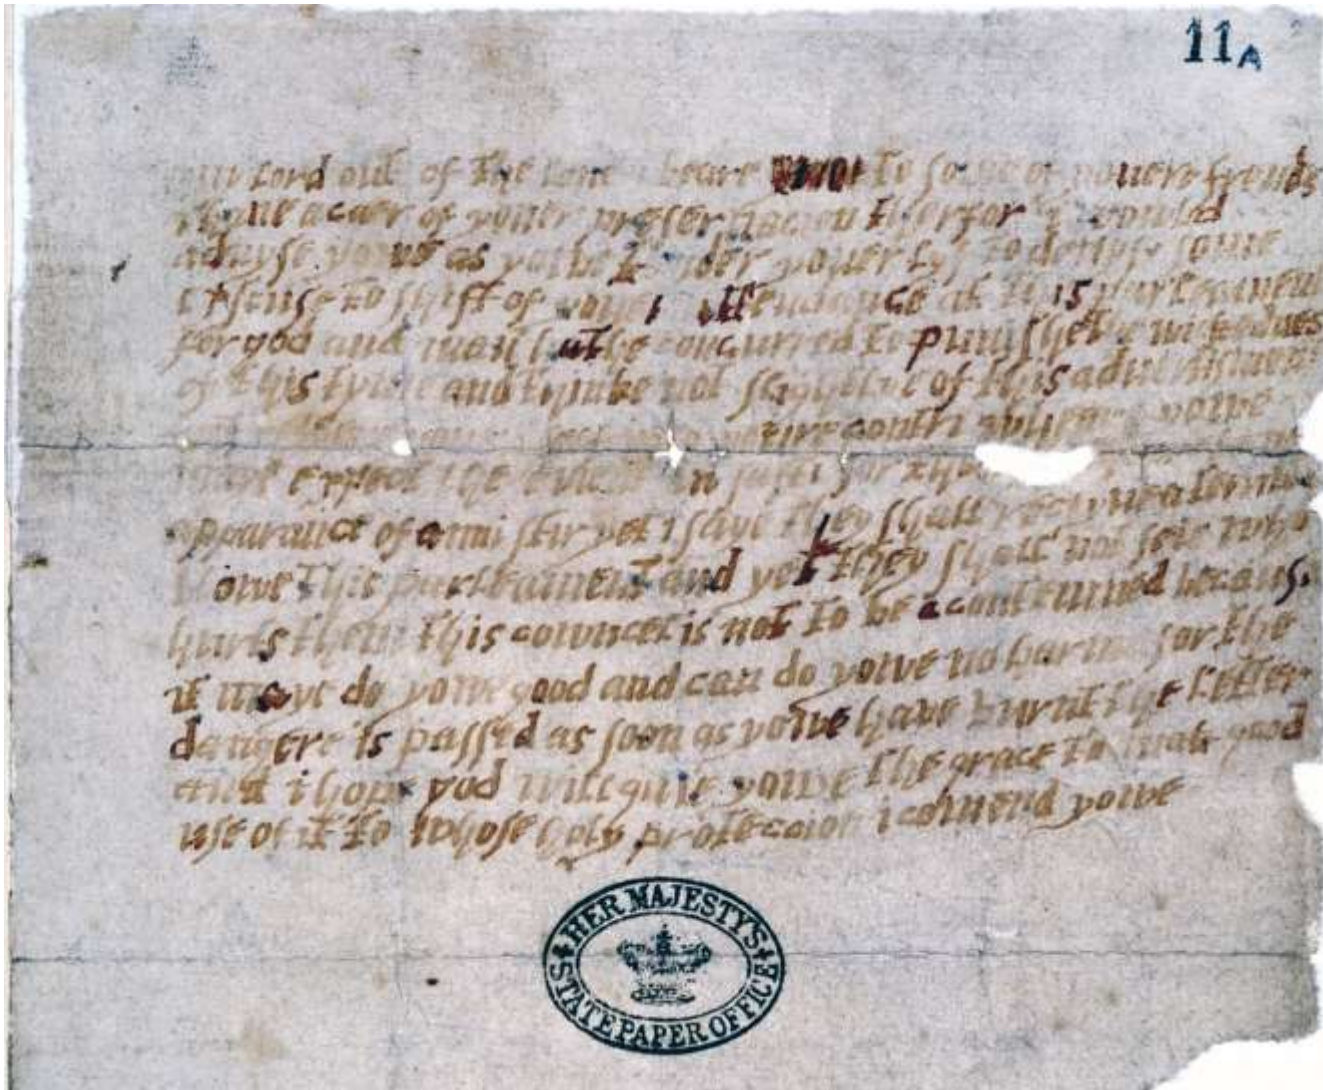 11A
my lord out of the love i beare to some of youere frends
i have a caer of youer preservacion therfor i would
advyse yowe as yowe tender youer lyf to devyse some
excuse to shift of youer attendance at this parleament
for god and man hathe concurred to punishe the wickednes
of this tyme and thinke not slightlye of this advertisment
youre contri yowe
expect the event in safti for
apparance of anni stir yet i saye they shall receyve a terrible
blowe this parleament and yet they shall not seie who
hurts them this cowncel is not to be acontemned because
it maye do yowe good and can do yowe no harme for the
dangere is passed as soon as yowe have burnt the letter
and i hope god will give yowe the grace to mak good
use of it to whose holy proteccion i comend yowe
HER MAJESTY'S
STATE PAPER OFFICE